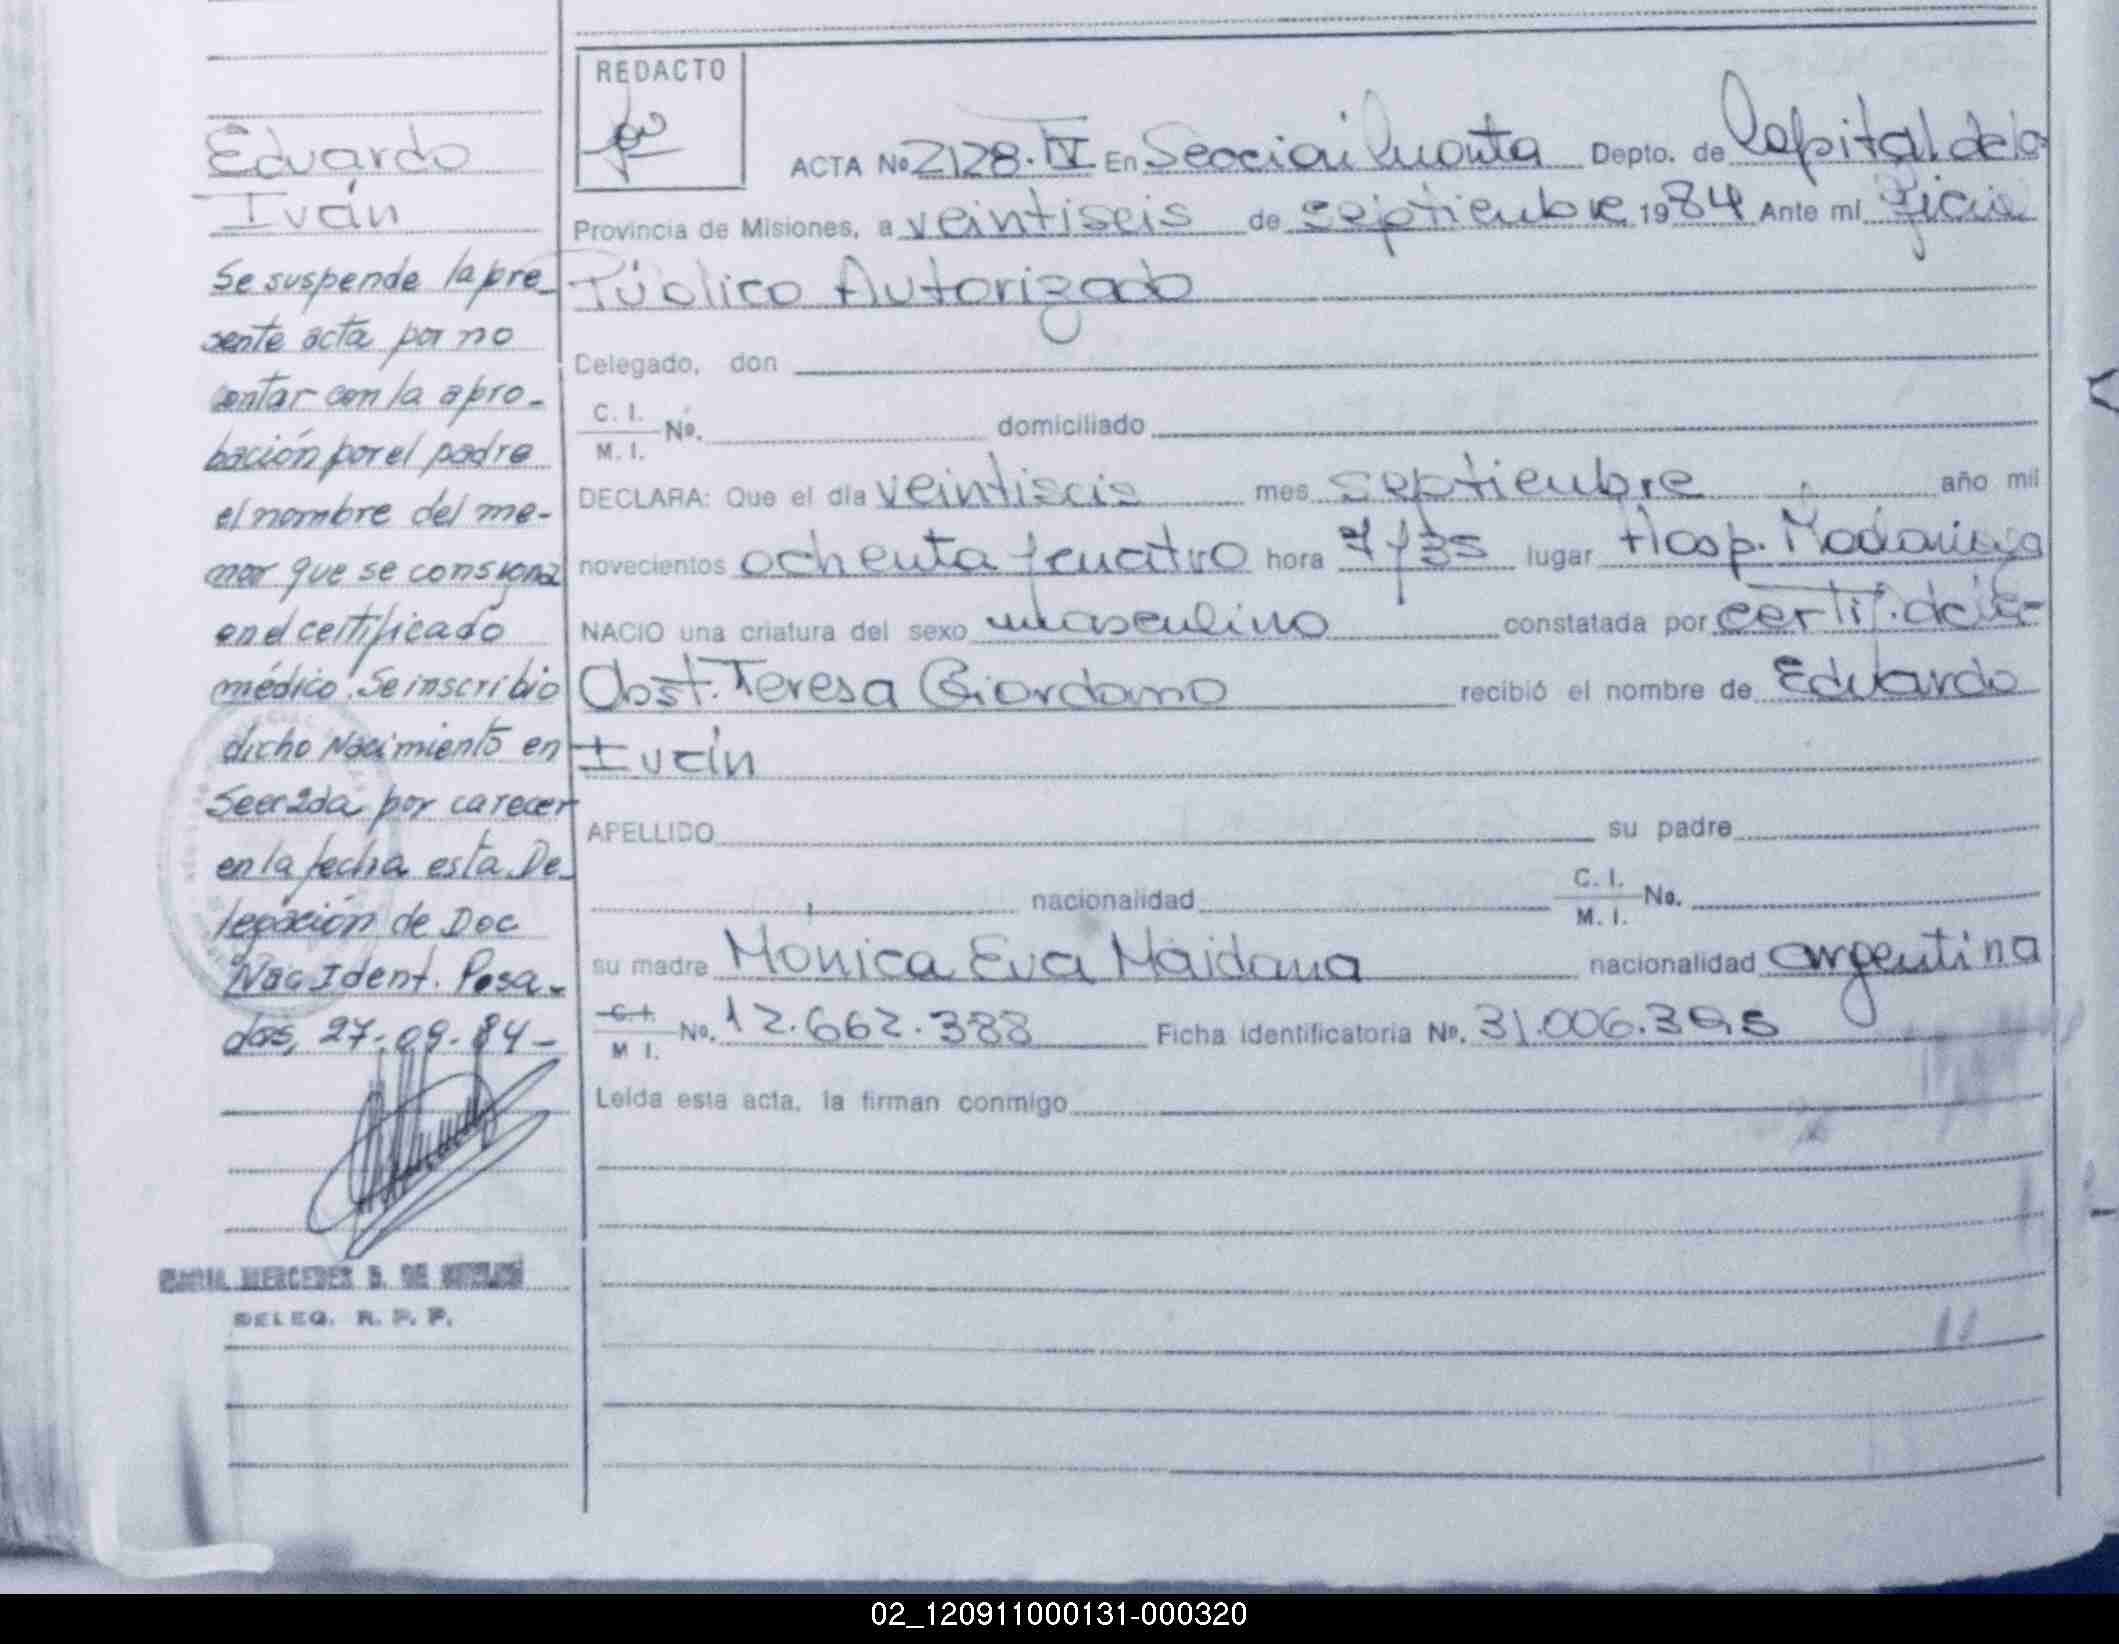 Eduardo
Iván
Se suspende la pre-
sente acta por no
contar con la apro-
bación por el padre
el nombre del me-
nor que se consigna
en el certificado
médico. Se inscribio
dicho Nacimiento en
Secc 2da por carecer
en la fecha esta De-
legación de Doc
Nac Ident. Posa-
das, 27-09-84-
MERCEDES B. DE
DELEG. R. P. P.
REDACTO
ACTA No 2128.IV En Sección Cuarta Depto. de Capital de la
Provincia de Misiones, a veintiseis de septiembre 1984 Ante mi Oficial
Público Autorizado
Delegado, don
C. I.
M. I. No. domiciliado
DECLARA: Que el día veintiseis mes septiembre año mil
novecientos ochenta y cuatro hora 7 y 35 lugar Hosp. Madariaga
NACIO una criatura del sexo masculino constatada por certif. de la
Obst. Teresa Giordano recibió el nombre de Eduardo
Iván
APELLIDO su padre
nacionalidad C. I. M. I. No.
su madre Mónica Eva Maidana nacionalidad argentina
C. I. M I. No. 12.662.388 Ficha identificatoria No. 31.006.395
Leída esta acta, la firman conmigo
02_120911000131-000320